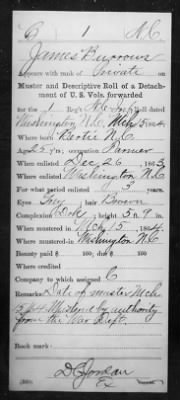 B 1 N.C
James Burrows
Appears with rank of Private on
Muster and Descriptive Roll of a Detachment
of U. S. Vols. forwarded
for the 1 Reg't N.C. Roll dated
Washington N.C. Mch 15, 1864.
Where born Bertie N.C.
Age 23 y'rs; occupation Farmer
When enlisted Dec 26, 1863.
Where enlisted Washington N.C.
For what period enlisted 3 years.
Eyes Grey; hair Brown
Complexion Dark; height 5 ft. 9 in.
When mustered in Mch 15, 1864.
Where mustered in Washington N.C.
Bounty paid $ 100; due $ 100
Where credited
Company to which assigned C
Remarks: Date of muster Mch
15/64 Mustered by authority
from the War Dept.
Book mark:
D. C. Jordan